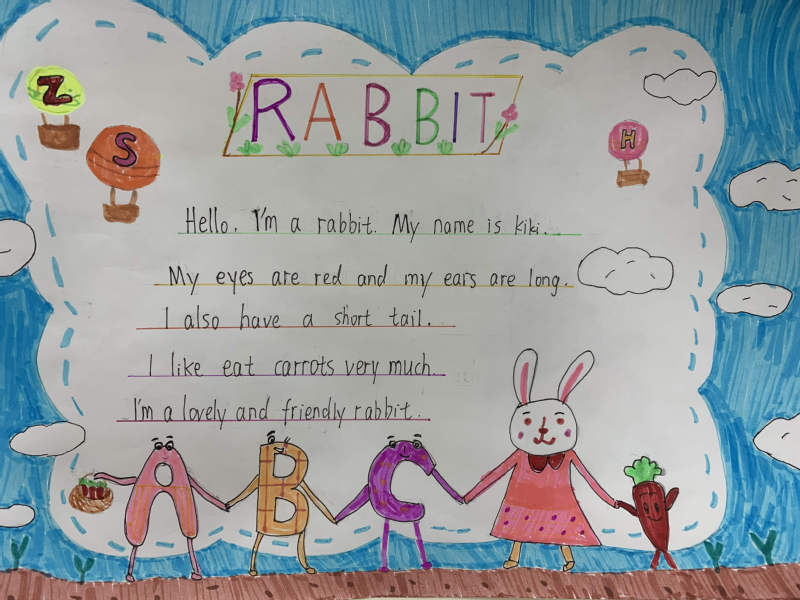 RABBIT
Z
S
H
Hello. I'm a rabbit. My name is kiki.
My eyes are red and my ears are long.
I also have a short tail.
I like eat carrots very much.
I'm a lovely and friendly rabbit.
A B C